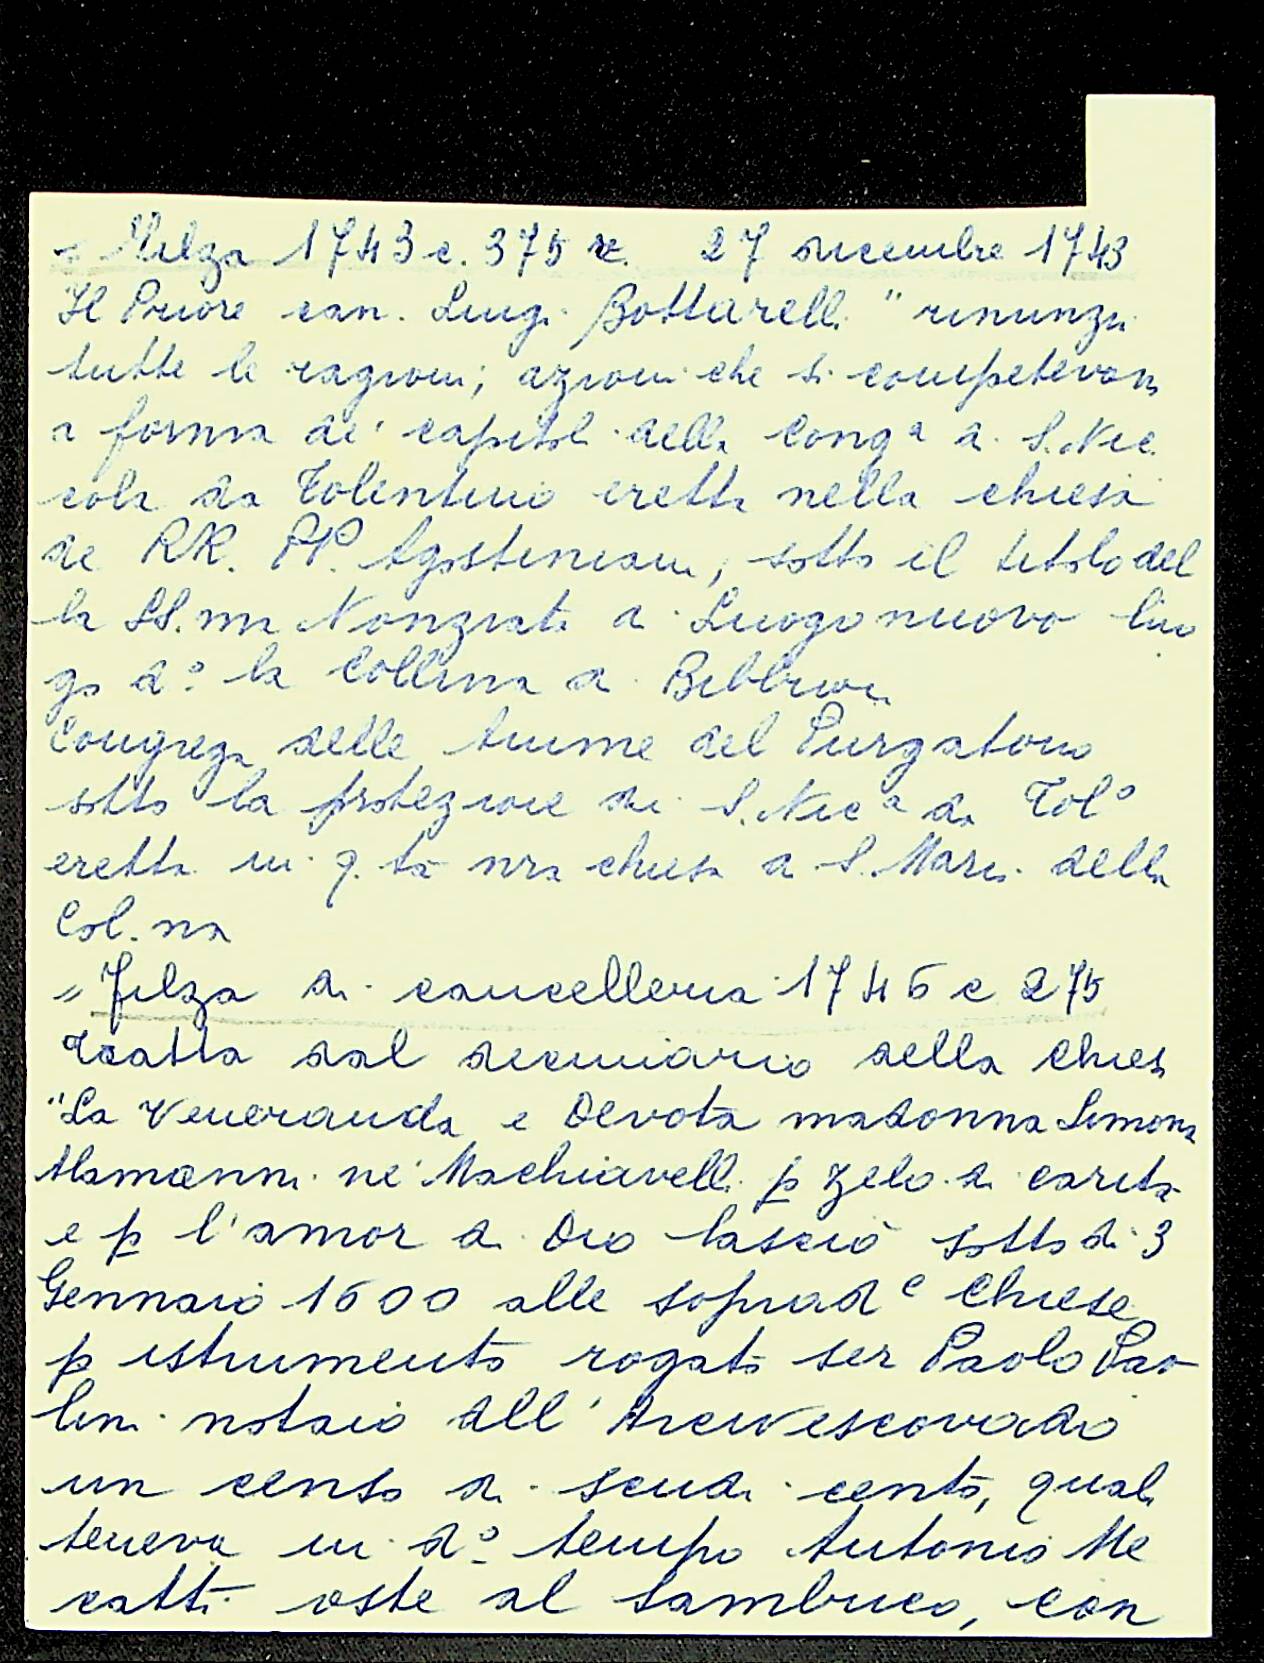 " Filza 1743 c. 375 re. 27 dicembre 1743
"Il Priore can. Luigi Bottarelli " rinunzi
tutte le ragioni, azioni che si competevano
a forma de' capitoli della Conga di S. Nic
cola da Tolentino eretta nella chiesa
de RR. PP. Agostiniani, sotto il titolo del
la SS.ma Nonziata a Luogo nuovo luo
go do la Collina a Bibbiani
Congrega delle Anime del Purgatorio
sotto la protezione di S. Nica da Tolo
eretta in q.ta nra chiesa di S. Maria della
Col.na
" Filza di cancelleria 1746 c 275
Tratta dal decimario della chiesa
"La Veneranda e Devota madonna Simona
Alamanni ne' Machiavelli p zelo di carità
e p l'amor di Dio lasciò sotto di 3
Gennaio 1600 alle sopradc Chiese
p istrumento rogato ser Paolo Pao
lini notaio all' Arcivescovado
un censo di scudi cento, quali
teneva in do tempo Antonio Me
catti oste al Sambuco, con